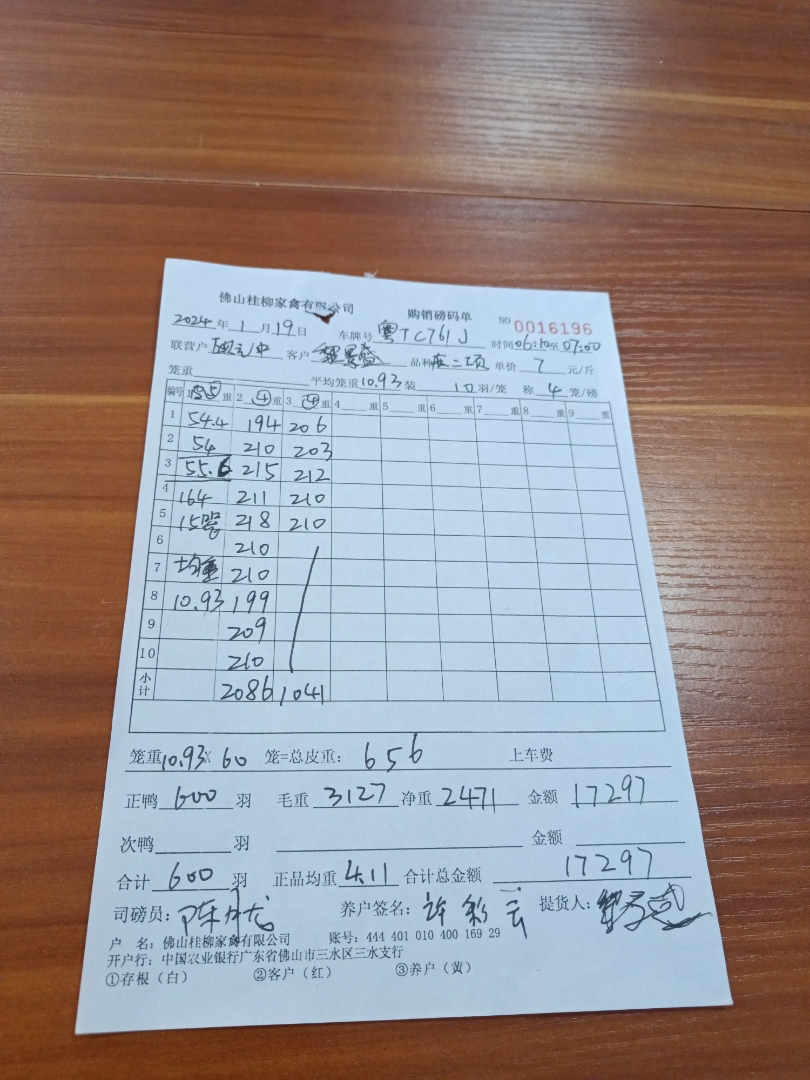 佛山桂柳家禽有限公司 购销磅码单 NO 0016196
2024年1月19日 车牌号 粤TC761J 时间06:10至07:00
联营户 客户 品种 单价 7 元/斤
笼重 平均笼重10.93 装 10 羽/笼 称 4 笼/磅
编号 1 ⑤ 重 2 ④ 重 3 ④ 重 4 重 5 重 6 重 7 重 8 重 9 重
1 54.4 194 206
2 54 210 203
3 55.6 215 212
4 164 211 210
5 15 218 210
6 210
7 均重 210
8 10.93 199
9 209
10 210
小计 2086 1041
笼重10.93×60 笼=总皮重: 656 上车费
正鸭 600 羽 毛重 3127 净重 2471 金额 17297
次鸭 羽 金额
合计 600 羽 正品均重 4.11 合计总金额 17297
司磅员: 养户签名: 许彩云 提货人:
户 名: 佛山桂柳家禽有限公司 账号: 444 401 010 400 169 29
开户行: 中国农业银行广东省佛山市三水区三水支行
①存根（白） ②客户（红） ③养户（黄）